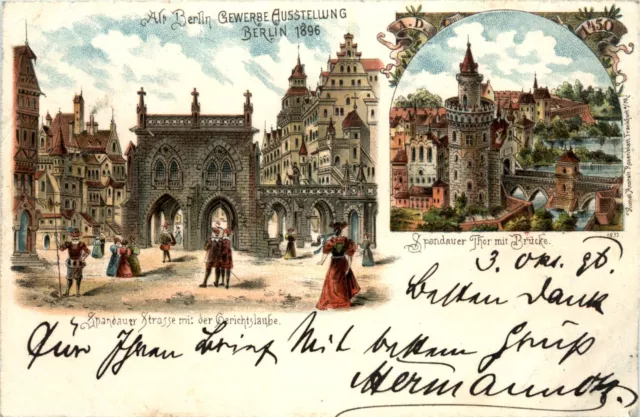 Alt Berlin Gewerbe Ausstellung
Berlin 1896
I. D.
1450
Spandauer Thor mit Brücke.
Spandauer Strasse mit der Gerichtslaube.
3. Okt. 96.
besten Dank
für Ihren Brief Mit bestem Gruß
Hermann